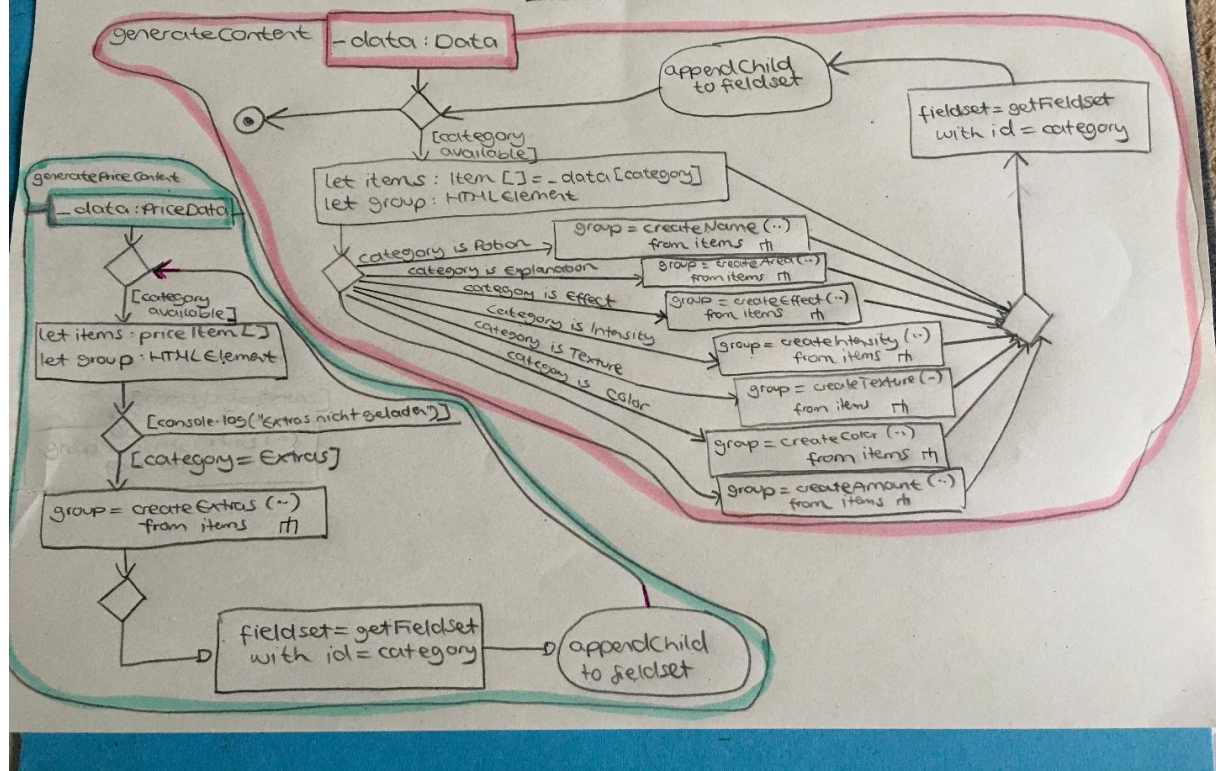 generateContent
_data:Data
appendChild
to fieldset
fieldset = getFieldset
with id = category
[category
available]
let items : Item [] = _data[category]
let group : HTMLElement
category is Potion
group = createName (..)
from items
category is Explanation
group = createArea (..)
from items
category is Effect
group = createEffect (..)
from items
category is Intensity
group = createIntensity (..)
from items
category is Texture
group = createTexture (..)
from items
category is Color
group = createColor (..)
from items
group = createAmount (..)
from items
generatePriceContent
_data:PriceData
[category
available]
let items : priceItem []
let group : HTMLElement
[console.log("Extras nicht geladen")]
[category = Extras]
group = createExtras (..)
from items
fieldset = getFieldset
with id = category
appendChild
to fieldset